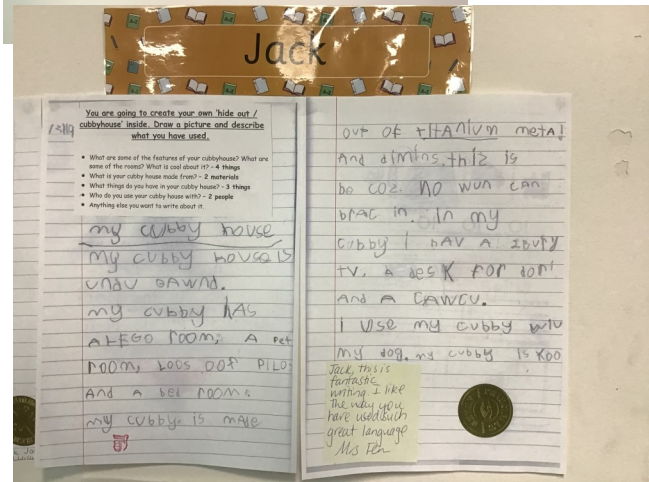 Jack
13/19
You are going to create your own 'hide out /
cubbyhouse' inside. Draw a picture and describe
what you have used.
• What are some of the features of your cubbyhouse? What are
some of the rooms? What is cool about it? - 4 things
• What is your cubby house made from? - 2 materials
• What things do you have in your cubby house? - 3 things
• Who do you use your cubby house with? - 2 people
• Anything else you want to write about it.
my cubby house
my cubby house is
undu GAWND.
my cubby hAS
A LEGO room, A Pet
room, LOOS OOF PILO
And A bed room.
my cubby is made
out OF titAnium metAl
And dimins. thiz is
be coz. no wun cAn
brAC in. In my
cubby I hAV A
tv, A desK FOR
And A CAWCU.
I Use my cubby
my dog. my cubby Is Koo
Jack, this is
fantastic
writing. I like
the way you
have used such
great language
Mrs